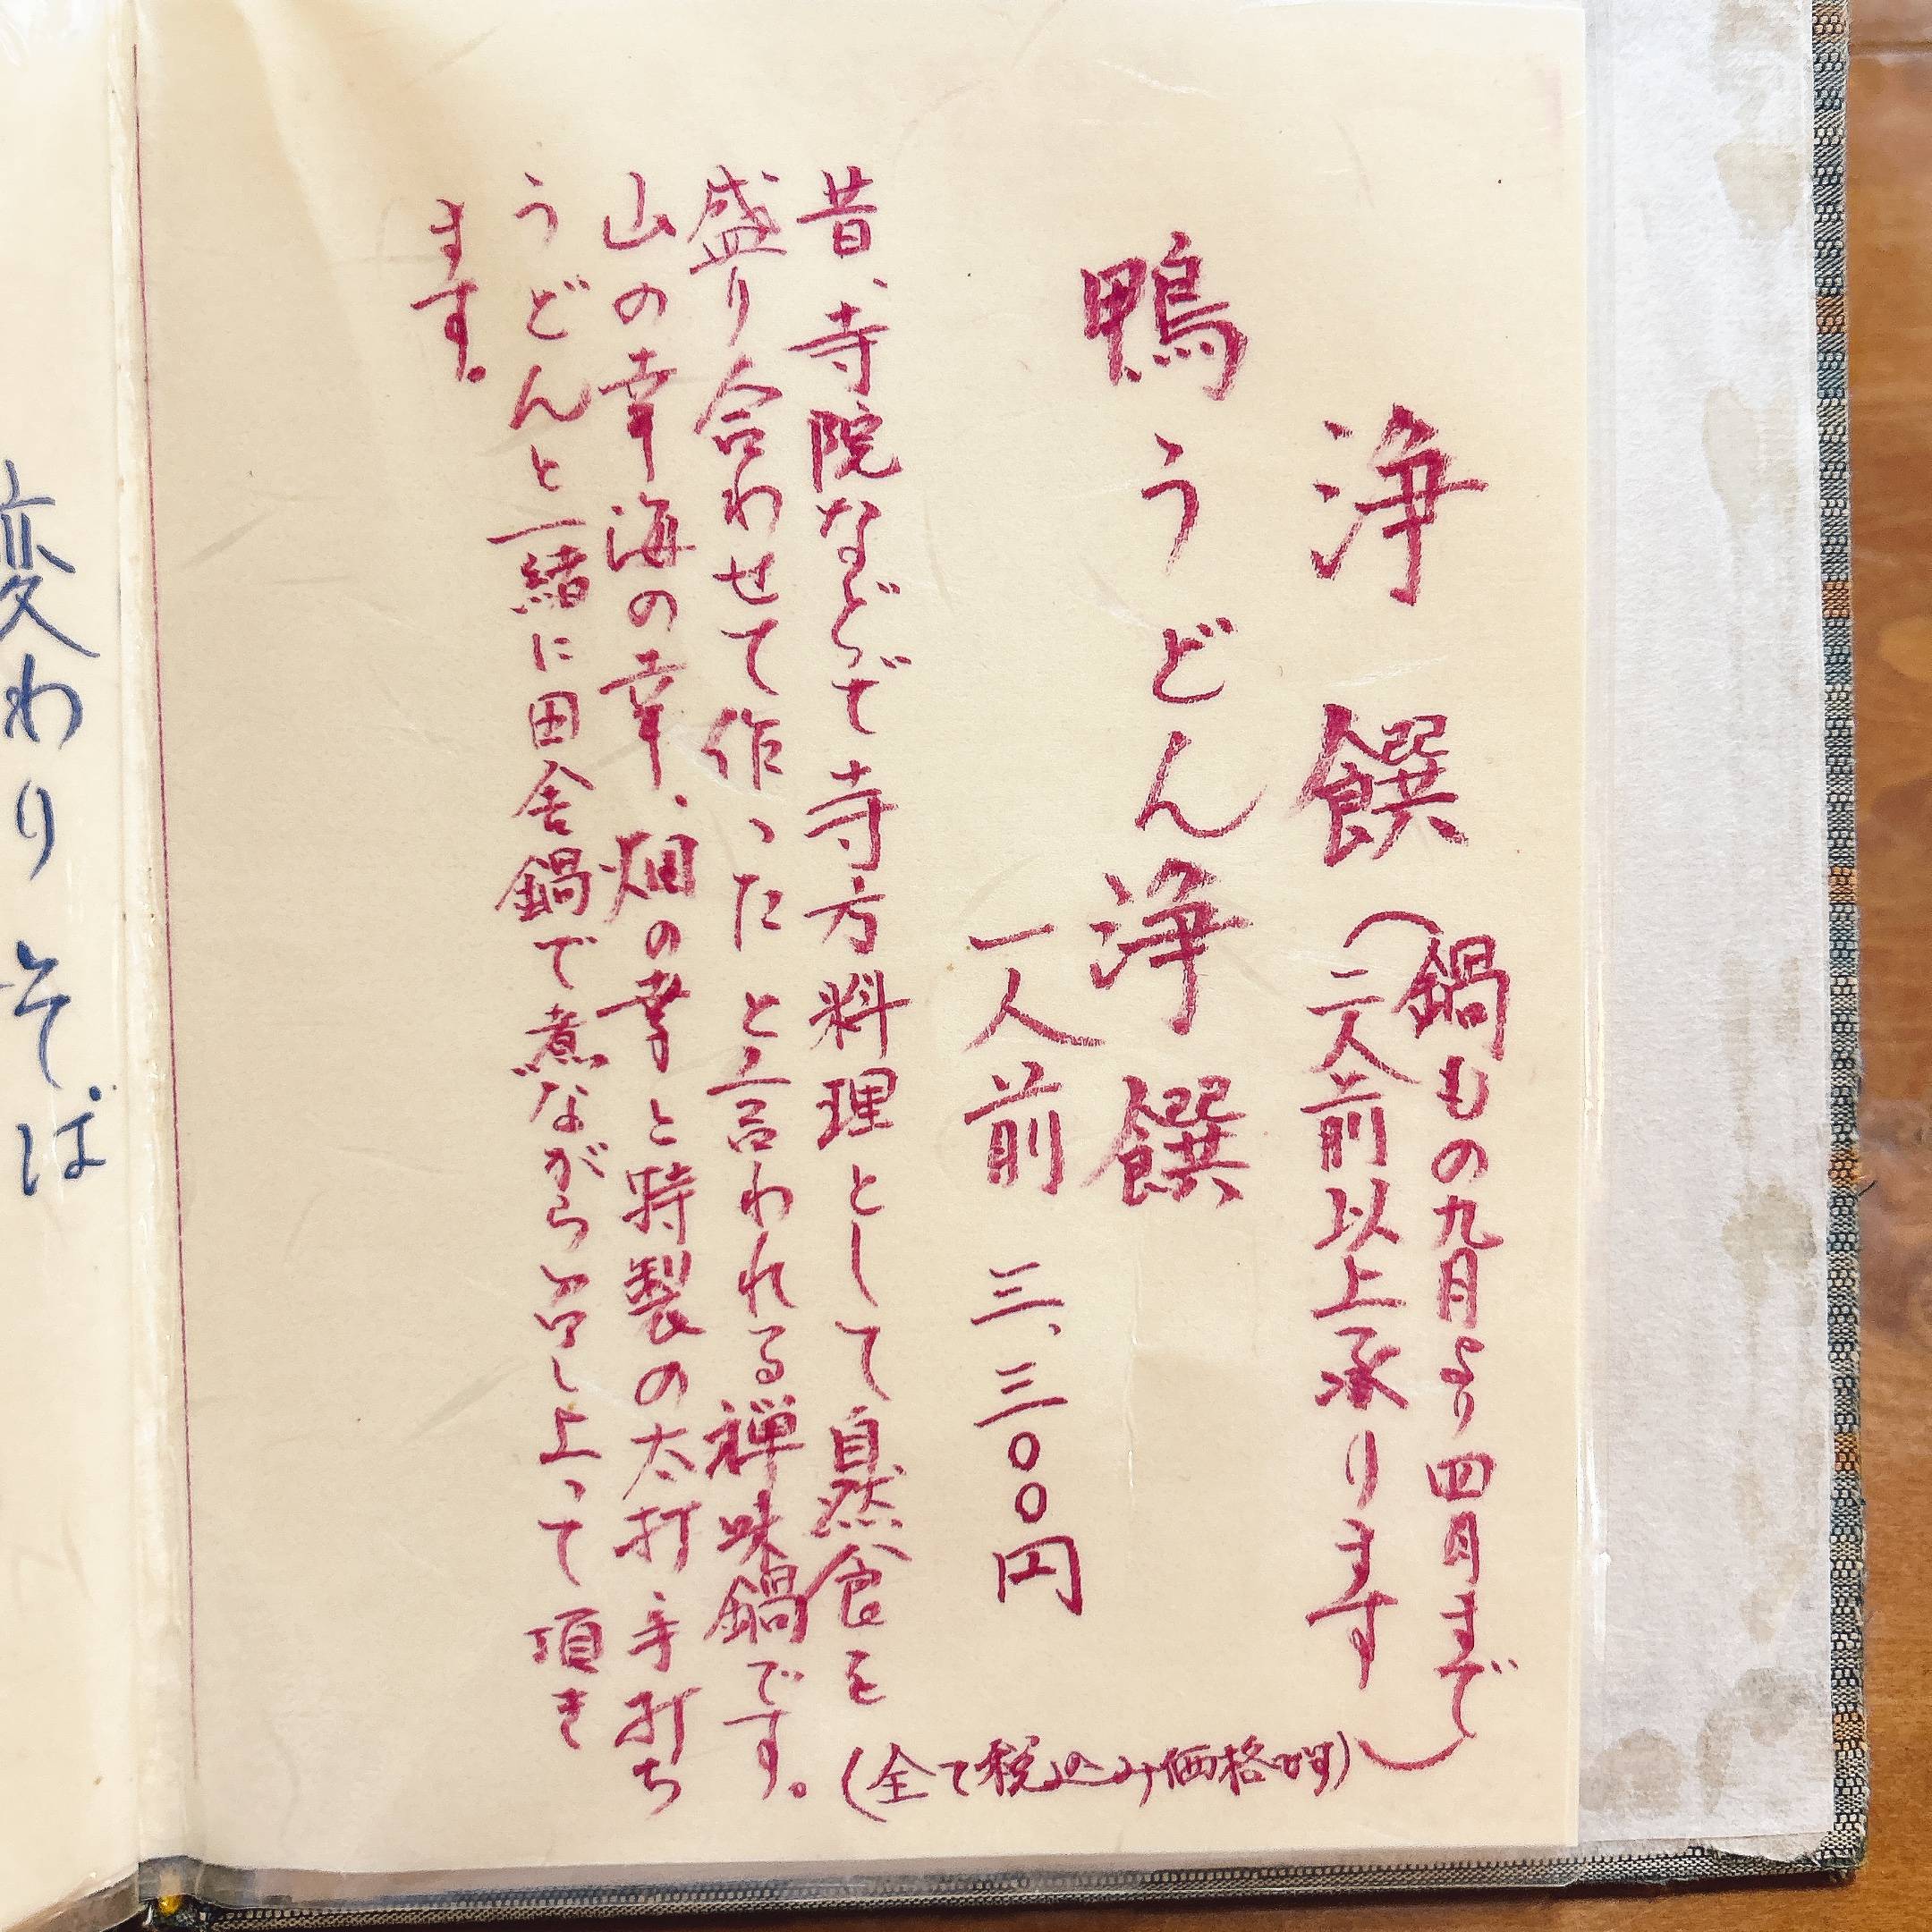 浄饌
(鍋もの九月より四月まで
二人前以上承ります)
鴨うどん浄饌
一人前 三、三〇〇円
昔、寺院などで寺方料理として自然食を
盛り合わせて作ったと言われる禅味鍋です。
山の幸海の幸、畑の幸と特製の太打手打ち
うどんと一緒に田舎鍋で煮ながら召し上って頂き
ます。
(全て税込み価格です)
変わりそば